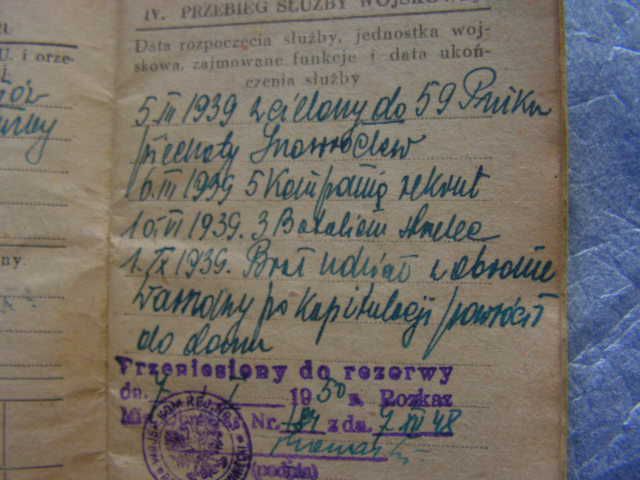 IV. PRZEBIEG SŁUŻBY WOJSKOWEJ
Data rozpoczęcia służby, jednostka woj-
skowa, zajmowane funkcje i data ukoń-
czenia służby
5 III 1939 wcielony do 59 Pułku
piechoty Inowrocław
6. III 1939 5 Kompanię rekrut
10. VI 1939. 3 Batalion strzelec
1. IX 1939. Brał udział w obronie
Warszawy po kapitulacji powrócił
do domu
Przeniesiony do rezerwy
dn. 1950 r. Rozkaz
Nr. z dn. 7 XII 48
(podpis)
U. i orze-
ny.